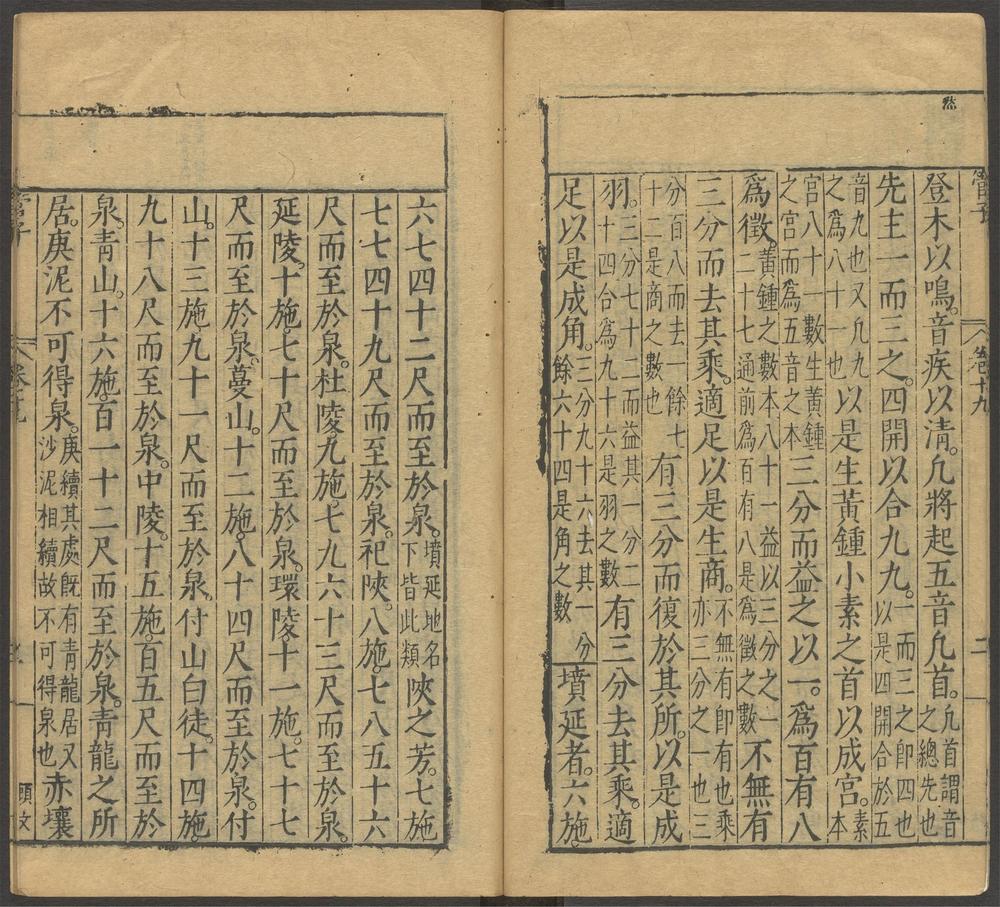 管子 卷十九 二
登木以鳴。音疾以清。凡將起五音凡首。凡首謂音之總先也
先主一而三之。四開以合九九。一而三之即四也以是四開合於五
音九也又九九之爲八十一也以是生黃鍾小素之首以成宮。素本
宮八十一數生黃鍾之宮而爲五音之本三分而益之以一。爲百有八
爲徵。黃鍾之數本八十一益以三分之一二十七通前爲百有八是爲徵之數不無有
三分而去其乘。適足以是生商。不無有即有也乘亦三分之一也三
分百八而去一餘七十二是商之數也有三分而復於其所。以是成
羽。三分七十二而益其一分二十四合爲九十六是羽之數有三分去其乘。適
足以是成角。三分九十六去其一分餘六十四是角之數墳延者。六施。
六七四十二尺而至於泉。墳延地名下皆此類陝之芳。七施
七七四十九尺而至於泉。祀陝。八施七八五十六
尺而至於泉。杜陵九施七九六十三尺而至於泉。
延陵。十施。七十尺而至於泉。環陵十一施。七十七
尺而至於泉。蔓山。十二施。八十四尺而至於泉。付
山。十三施九十一尺而至於泉。付山白徒。十四施。
九十八尺而至於泉。中陵。十五施。百五尺而至於
泉。靑山。十六施。百一十二尺而至於泉。靑龍之所
居。庚泥不可得泉。庚續其處既有靑龍居又沙泥相續故不可得泉也赤壤
管子